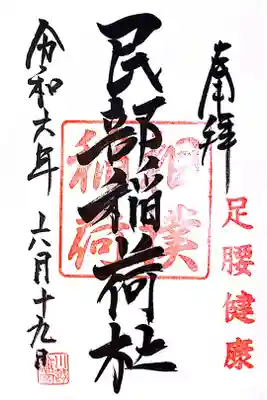 奉拝
足腰健康
相撲
稲荷
民部稲荷社
令和六年 六月十九日